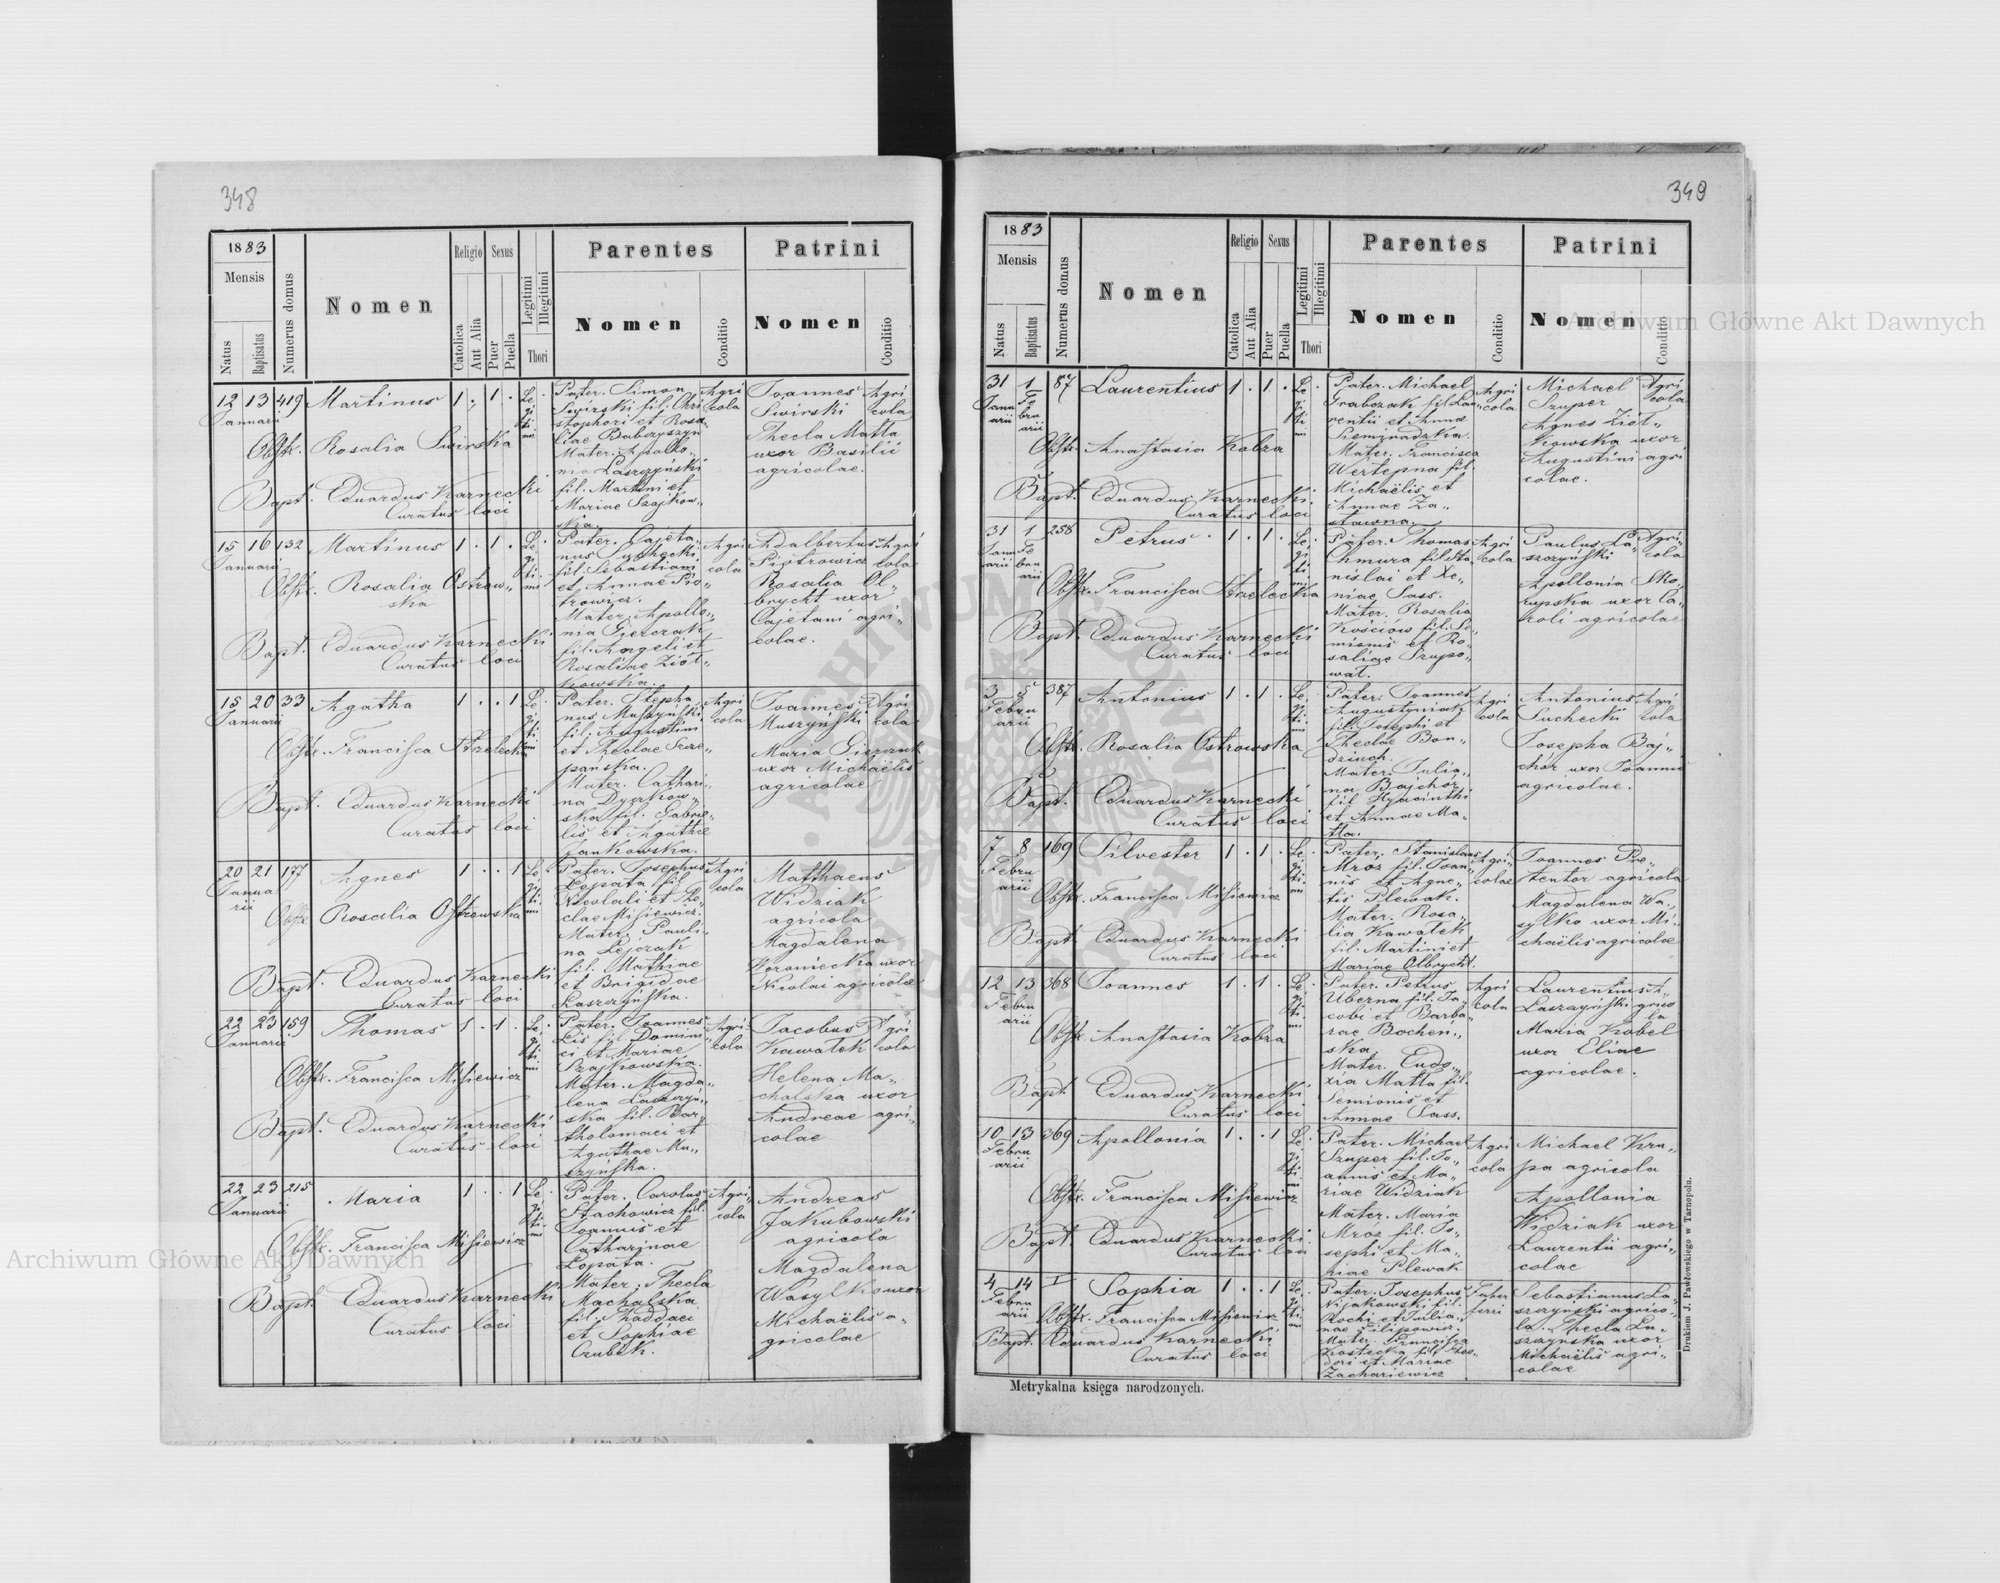 348
1883
Mensis
Natus
Baptisatus
Numerus domus
Nomen
Religio
Catolica
Aut Alia
Sexus
Puer
Puella
Legitimi
Illegitimi
Thori
Parentes
Nomen
Conditio
Patrini
Nomen
Conditio
12 13 419 Martinus 1 . 1 .
Januarii
Obstr. Rosalia Swirska
Bapt. Eduardus Karnecki
Curatus loci
Le
gi
ti
mi
Pater. Simon
Swirski fil. Chri
stophori et Rosa„
liae Babczyszyn
Mater. Apollo„
nia Laszczyński
fil. Martini et
Mariae Szajkow„
ska.
Agri
cola
Joannes Agri
Swirski cola
Thecla Matla
uxor Basilii
agricolae.
15 16 132 Martinus 1 . 1 .
Januarii
Obstr. Rosalia Ostrow„
ska
Bapt. Eduardus Karnecki
Curatus loci
Le
gi
ti
mi
Pater. Cajeta„
nus Suchecki
fil. Sebastiani
et Annae Pio„
trowicz.
Mater. Apollo„
nia Gierczak
fil. Angeli et
Rosaliae Ziół„
kowska.
Agri
cola
Adalbertus Agri
Piotrowicz cola
Rosalia Ol„
brycht uxor
Cajetani agri„
colae.
15 20 33 Agatha 1 . . 1
Januarii
Obstr. Francisca Strzelecka
Bapt. Eduardus Karnecki
Curatus loci
Le
gi
ti
mi
Pater. Stepha
nus Muszyński
fil. Augustini
et Theclae Szcze„
pańska.
Mater. Cathari„
na Dyczkow„
ska fil. Gabrie„
lis et Agathae
Jankowska.
Agri
cola
Joannes Agri
Muszyński cola
Maria Gierczak
uxor Michaëlis
agricolae
20 21 177 Agnes 1 . . 1
Janua
rii
Obstr. Rosalia Ostrowska
Bapt. Eduardus Karnecki
Curatus loci
Le
gi
ti
mi
Pater. Josephus
Łopata fil.
Nicolai et The„
clae Misiewicz.
Mater. Pauli„
na Lejczak
fil. Mathiae
et Brigidae
Laszczyńska.
Agri
cola
Matthaeus
Widziak
agricola
Magdalena
Woroniecka uxor
Nicolai agricolae
22 23 159 Thomas 1 . 1 .
Januarii
Obstr. Francisca Misiewicz
Bapt. Eduardus Karnecki
Curatus loci
Le
gi
ti
mi
Pater. Joannes
Lis fil. Domini„
ci et Mariae
Szajkowska.
Mater. Magda„
lena Laszczyń„
ska fil. Bar„
tholomaei et
Agathae Mu„
szyńska.
Agri
cola
Jacobus Agri
Kawałek cola
Helena Ma„
chalska uxor
Andreae agri„
colae
22 23 215 Maria 1 . . 1
Januarii
Obstr. Francisca Misiewicz
Bapt. Eduardus Karnecki
Curatus loci
Le
gi
ti
mi
Pater. Carolus
Stachowicz fil.
Joannis et
Catharinae
Łopata.
Mater. Thecla
Machalska
fil. Thaddaei
et Sophiae
Czubek.
Agri„
cola
Andreas
Jakubowski
agricola
Magdalena
Wasylko uxor
Michaëlis a„
gricolae
349
1883
Mensis
Natus
Baptisatus
Numerus domus
Nomen
Religio
Catolica
Aut Alia
Sexus
Puer
Puella
Legitimi
Illegitimi
Thori
Parentes
Nomen
Conditio
Patrini
Nomen
Conditio
31 1 87 Laurentius 1 . 1 .
Janu Fe
arii bru
arii
Obstr. Anastasia Kobza
Bapt. Eduardus Karnecki.
Curatus loci
Le
gi
ti
mi
Pater. Michael
Grabczak fil. Lau„
rentii et Annae
Siemiradzka.
Mater. Francisca
Wertepna fil.
Michaëlis et
Annae Za„
stawna.
Agri
cola
Michael Agri
Szuper cola
Agnes Ziół„
kowska uxor
Augustini agri
colae.
31 1 258 Petrus 1 . 1 .
Janu Fe
arii bru
arii
Obstr. Francisca Strzelecka
Bapt. Eduardus Karnecki
Curatus loci
Le
gi
ti
mi
Pater. Thomas
Chmura fil. Sta„
nislai et Xe„
niae Sass.
Mater. Rosalia
Kościów fil. Se„
mionis et Ro„
saliae Szupo„
wał.
Agri
cola
Paulus La„ Agri„
szczyński cola
Apollonia Sko„
rupska uxor Ca„
roli agricolae
3 5 387 Antonius 1 . 1 .
Febru
arii
Obstr. Rosalia Ostrowska
Bapt. Eduardus Karnecki
Curatus loci
Le
gi
ti
mi
Pater. Joannes
Augustyniak
fil. Josephi et
Theclae Bon„
dziuch.
Mater. Julia„
na Bajchór
fil. Hyacinthi
et Annae Ma„
tla.
Agri
cola
Antonius Agri
Suchecki cola
Josepha Baj„
chór uxor Joannis
agricolae.
7 8 169 Silvester 1 . 1 .
Febru
arii
Obstr. Francisca Misiewicz
Bapt. Eduardus Karnecki
Curatus loci
Le
gi
ti
mi
Pater. Stanislaus
Mróz fil. Joan„
nis et Agne„
tis Plewak.
Mater. Rosa„
lia Kawałek
fil. Martini et
Mariae Olbrycht.
Agri„
colae
Joannes Pre„
tentor agricola
Magdalena Wa„
sylko uxor Mi„
chaëlis agricolae
12 13 368 Joannes 1 . 1 .
Febru
arii
Obstr. Anastasia Kobza
Bapt. Eduardus Karnecki
Curatus loci
Le
gi
ti
mi
Pater. Petrus
Uberna fil. Ja„
cobi et Barba„
rae Bochen„
ska.
Mater. Eudo„
xia Matla fil.
Semionis et
Annae Sass.
Agri
cola
Laurentius A„
Laszczyński grico
la
Maria Kobel
uxor Eliae
agricolae.
10 13 369 Apollonia 1 . . 1
Febru
arii
Obstr. Francisca Misiewicz
Bapt. Eduardus Karnecki.
Curatus loci
Le
gi
ti
mi
Pater. Michael
Szuper fil. Jo„
annis et Ma„
riae Widziak
Mater. Maria
Mróz fil. Jo„
sephi et Ma„
riae Plewak
Agri
cola
Michael Kru„
pa agricola
Apollonia
Widziak uxor
Laurentii agri„
colae
4 14 I Sophia 1 . . 1
Febru
arii
Obstr. Francisca Misiewicz
Bapt. Eduardus Karnecki
Curatus loci
Le
gi
ti
mi
Pater. Josephus
Nijakowski fil.
Rochi et Julia„
nae Filipowicz.
Mater. Francisca
Kostecka fil. Theo„
dori et Mariae
Zachariewicz
Faber
ferri
Sebastianus La„
szczynski agrico„
la. Thecla La„
szczynska uxor
Michaëlis agri„
colae
Metrykalna księga narodzonych.
Drukiem J. Pawłowskiego w Tarnopolu.
Archiwum Główne Akt Dawnych
Archiwum Główne Akt Dawnych